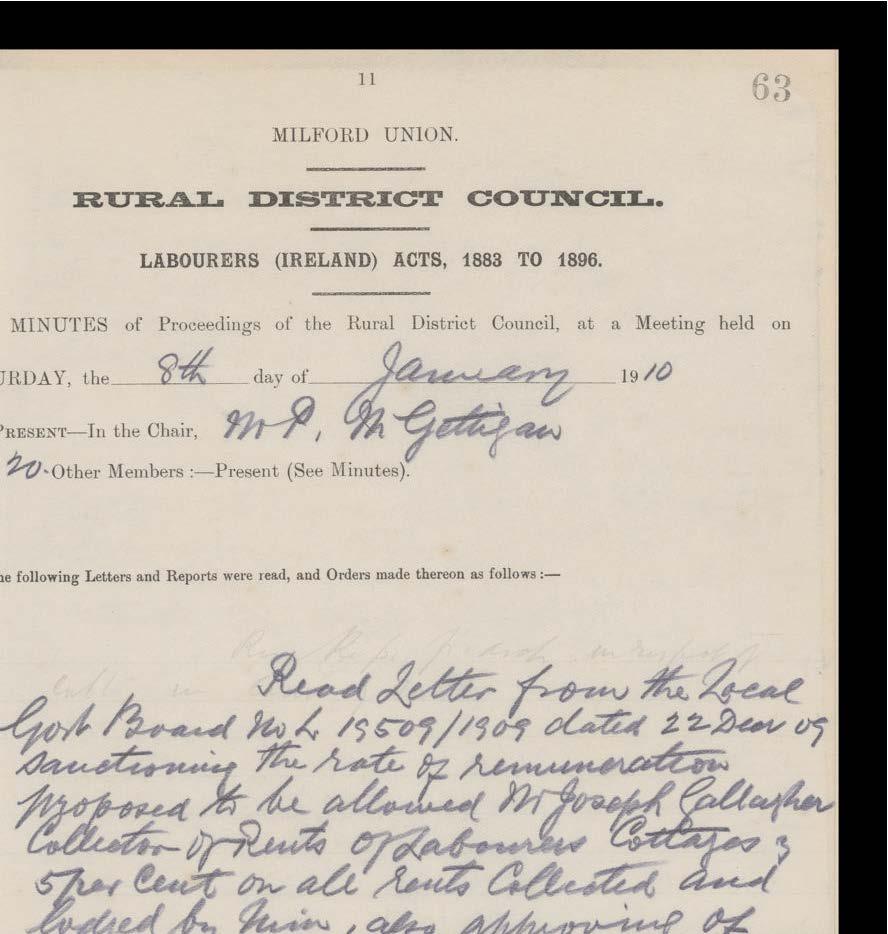 11
63
MILFORD UNION.
RURAL DISTRICT COUNCIL.
LABOURERS (IRELAND) ACTS, 1883 TO 1896.
MINUTES of Proceedings of the Rural District Council, at a Meeting held on
URDAY, the 8th day of January 1910
PRESENT—In the Chair, Mr P. McGettigan
20 Other Members :—Present (See Minutes).
he following Letters and Reports were read, and Orders made thereon as follows :—
Read Letter from the Local
Govt Board No L 19509/1909 dated 22 Decr 09
sanctioning the rate of remuneration
proposed to be allowed Mr Joseph Gallagher
Collector of Rents of Labourers Cottages
5 per Cent on all rents Collected and
lodged by him, also approving of